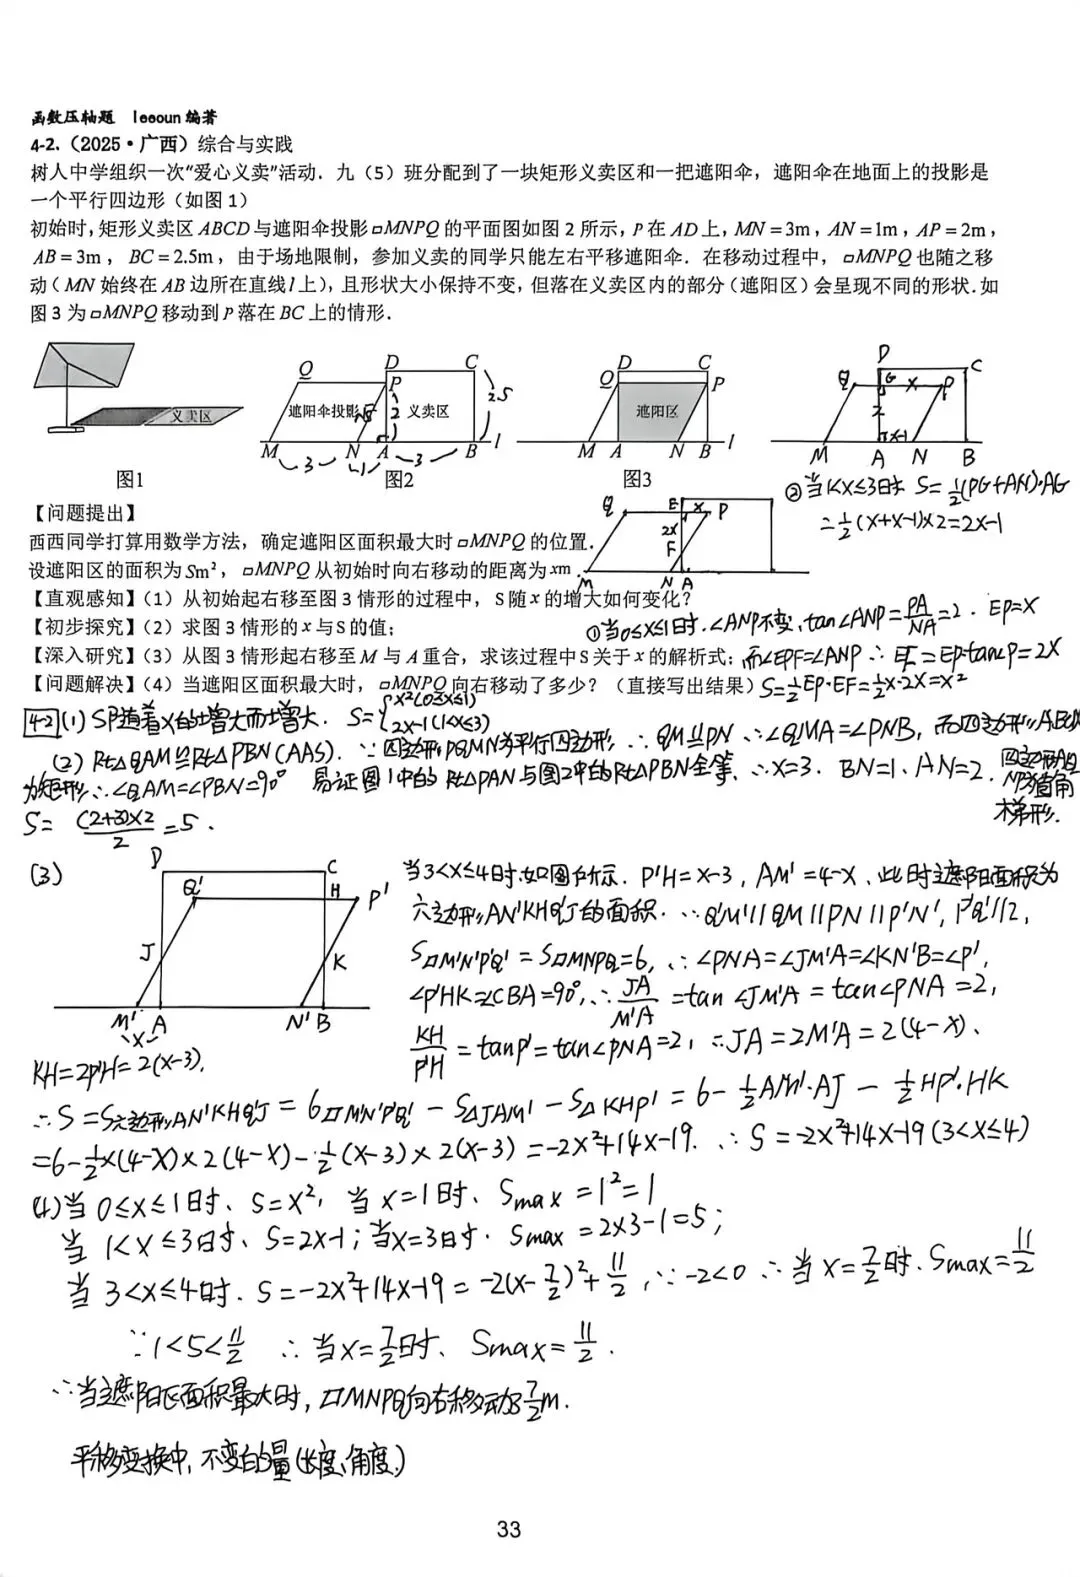 函数压轴题 leeoun 编著
4-2.（2025·广西）综合与实践
树人中学组织一次“爱心义卖”活动．九（5）班分配到了一块矩形义卖区和一把遮阳伞，遮阳伞在地面上的投影是
一个平行四边形（如图 1）
初始时，矩形义卖区 ABCD 与遮阳伞投影▱MNPQ 的平面图如图 2 所示，P 在 AD 上，MN = 3m，AN = 1m，AP = 2m，
AB = 3m， BC = 2.5m，由于场地限制，参加义卖的同学只能左右平移遮阳伞．在移动过程中，▱MNPQ 也随之移
动（MN 始终在 AB 边所在直线 l 上），且形状大小保持不变，但落在义卖区内的部分（遮阳区）会呈现不同的形状．如
图 3 为▱MNPQ 移动到 P 落在 BC 上的情形．
义卖区
图1
Q D C P 2 2.5
遮阳伞投影 义卖区
M N A B l
3 1 3
图2
D C Q P
遮阳区
M A N B l
图3
D C Q G x P 2 x-1
M A N B
②当1<x≤3时 S=½(PG+AN)·AG
=½(x+x-1)×2=2x-1
Q E x P 2x F M N A
【问题提出】
西西同学打算用数学方法，确定遮阳区面积最大时▱MNPQ 的位置．
设遮阳区的面积为 Sm²，▱MNPQ 从初始时向右移动的距离为 xm．
【直观感知】（1）从初始起右移至图 3 情形的过程中，S 随 x 的增大如何变化？
【初步探究】（2）求图 3 情形的 x 与 S 的值；
①当0≤x≤1时．∠ANP不变，tan∠ANP=PA/NA=2．EP=x
【深入研究】（3）从图 3 情形起右移至 M 与 A 重合，求该过程中 S 关于 x 的解析式；
而∠EPF=∠ANP ∴EF=EP·tan∠P=2x
【问题解决】（4）当遮阳区面积最大时，▱MNPQ 向右移动了多少？（直接写出结果）
S=½EP·EF=½x·2x=x²
4-2 (1) S随着x的增大而增大．S={x²(0≤x≤1) 2x-1(1<x≤3)
(2) Rt△QAM≌Rt△PBN(AAS)．∵四边形PQMN为平行四边形 ∴QM∥PN ∴∠QMA=∠PNB，而四边形ABCD
为矩形 ∴∠QAM=∠PBN=90° 易证图1中的Rt△PAN与图2中的Rt△PBN全等．∴x=3．BN=1、AN=2．四边形AQPN为直角梯形．
S=(2+3)×2/2=5．
(3)
D C Q' H P' J K M' A N' B x
当3<x≤4时．如图所示．P'H=x-3，AM'=4-x．此时遮阳面积为
六边形AN'KHQ'J的面积．∵Q'M'∥QM∥PN∥P'N'，P'Q'∥l，
S▱M'N'P'Q'=S▱MNPQ=6，∴∠PNA=∠JM'A=∠KN'B=∠P'，
∠P'HK=∠CBA=90°，∴JA/M'A=tan∠JM'A=tan∠PNA=2，
KH/P'H=tanP'=tan∠PNA=2，∴JA=2M'A=2(4-x)．
KH=2P'H=2(x-3)．
∴S=S六边形AN'KHQ'J=6▱M'N'P'Q'-S△JAM'-S△KHP'=6-½AM'·AJ-½HP'·HK
=6-½×(4-x)×2(4-x)-½(x-3)×2(x-3)=-2x²+14x-19．∴S=-2x²+14x-19(3<x≤4)
(4)当0≤x≤1时、S=x²，当x=1时、Smax=1²=1
当1<x≤3时、S=2x-1；当x=3时．Smax=2×3-1=5；
当3<x≤4时．S=-2x²+14x-19=-2(x-7/2)²+11/2，∵-2<0 ∴当x=7/2时．Smax=11/2
∵1<5<11/2 ∴当x=7/2时、Smax=11/2．
∴当遮阳区面积最大时，▱MNPQ向右移动了7/2m．
平移变换中，不变的量(长度、角度)
33